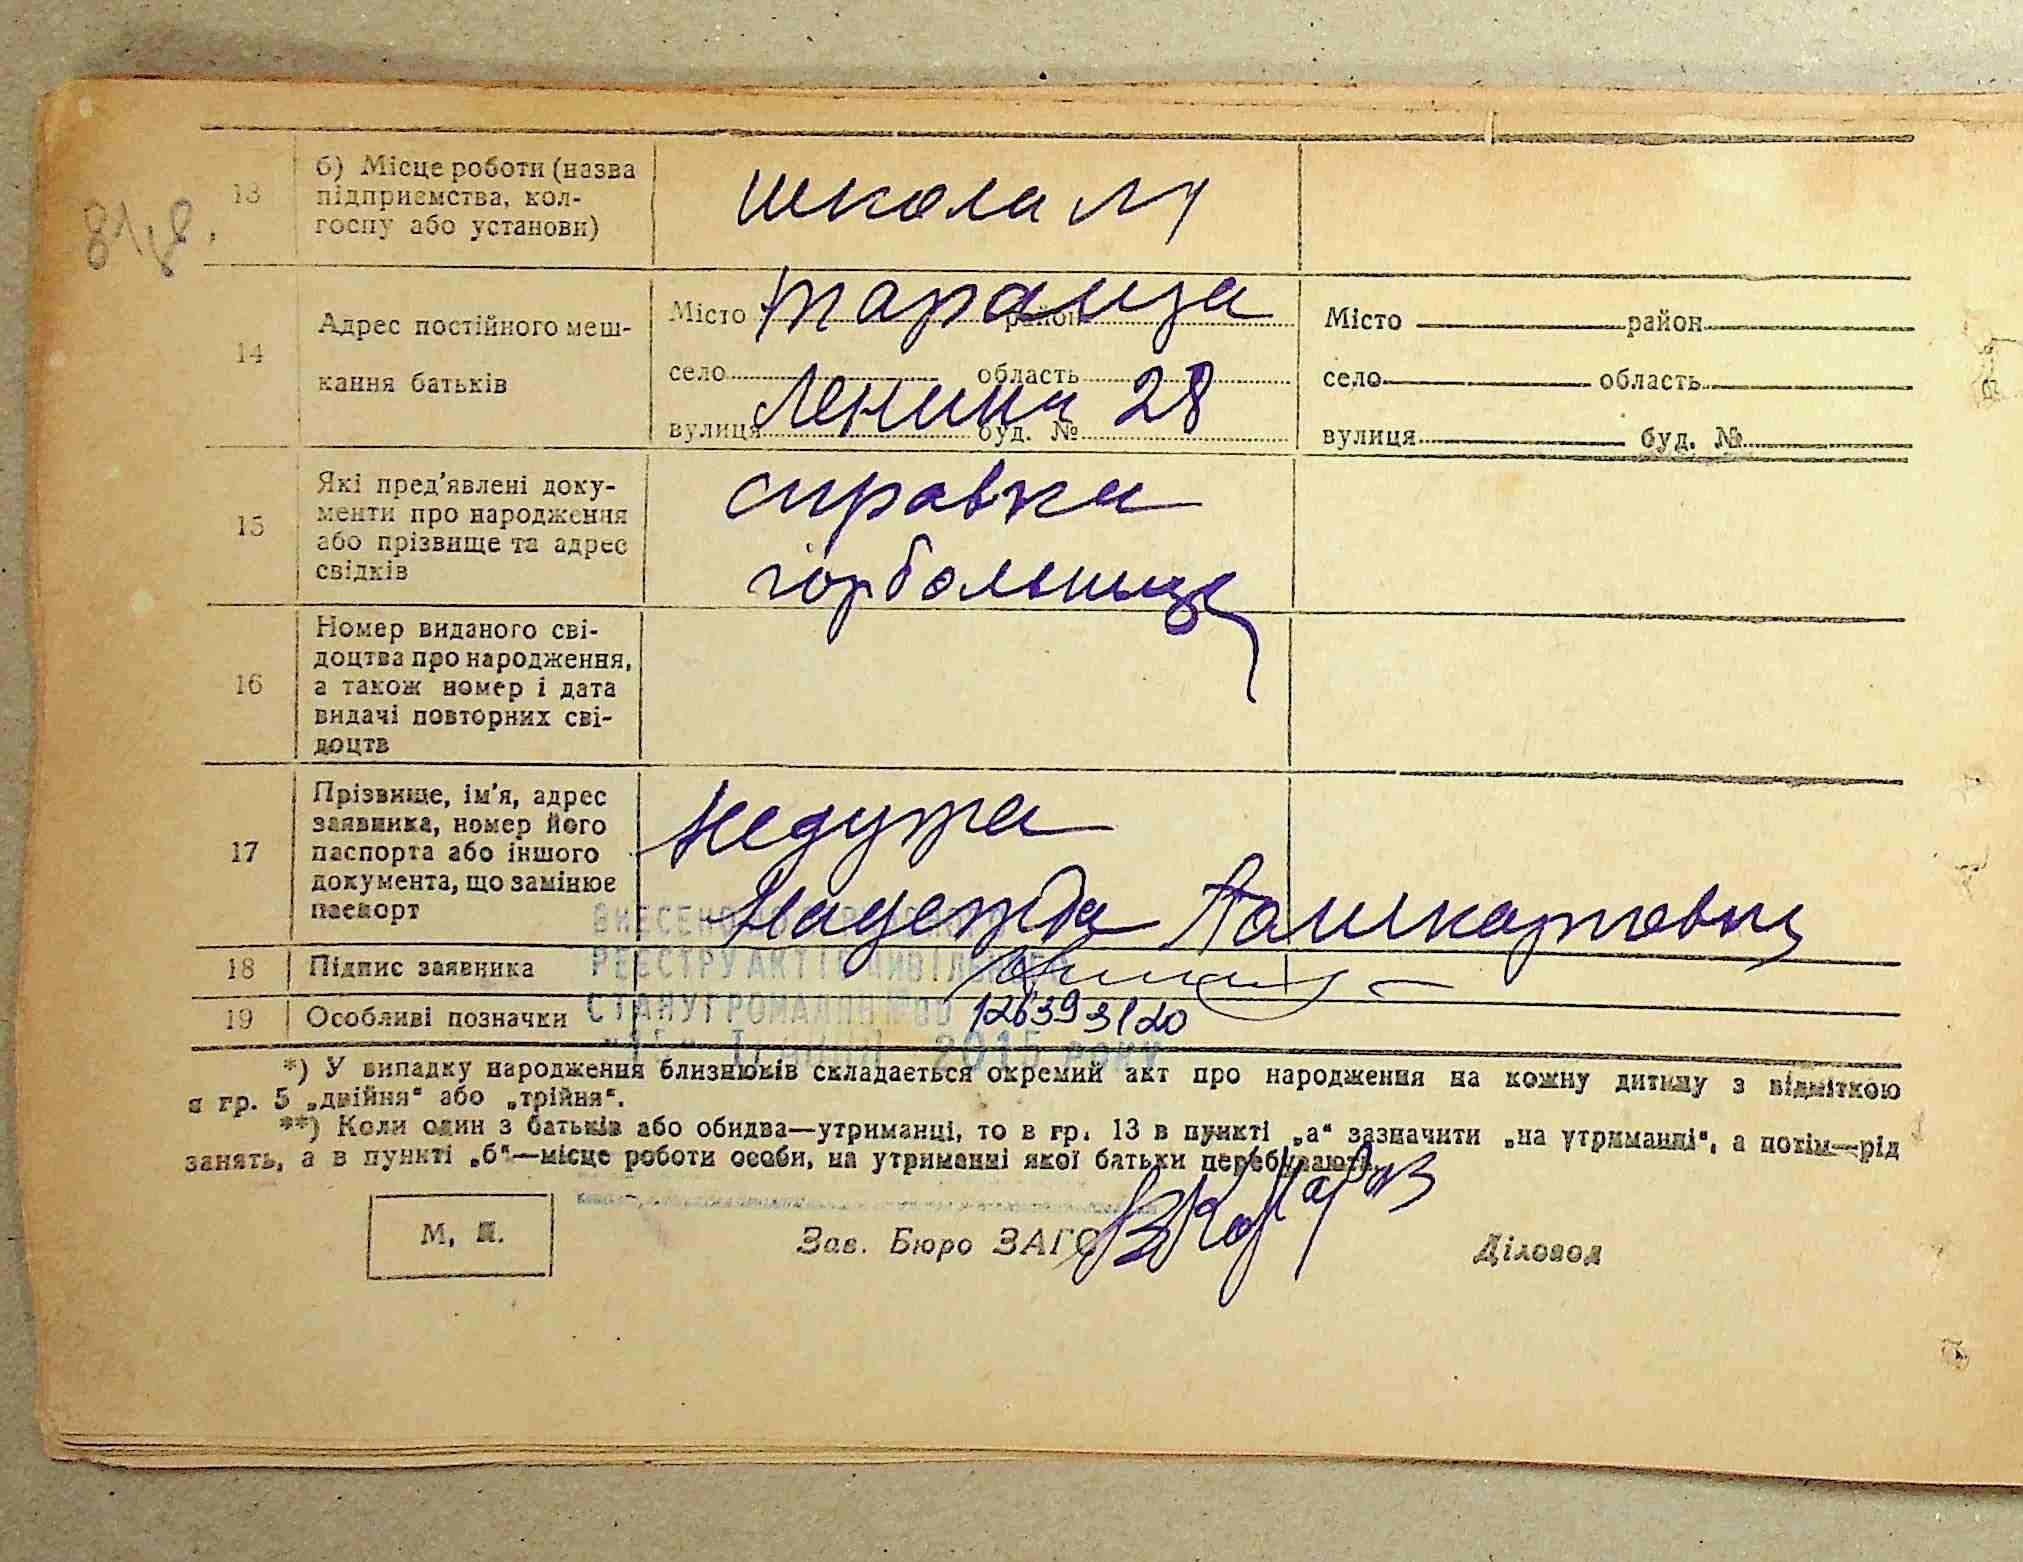 13
б) Місце роботи (назва
підприємства, кол-
госпу або установи)
школа
14
Адрес постійного меш-
кання батьків
Місто Тараща район
село область
вулиця Ленина буд. № 28
Місто район
село область
вулиця буд. №
15
Які пред'явлені доку-
менти про народження
або прізвище та адрес
свідків
справка
горбольницы
16
Номер виданого сві-
доцтва про народження,
а також номер і дата
видачі повторних сві-
доцтв
17
Прізвище, ім'я, адрес
заявника, номер його
паспорта або іншого
документа, що замінює
паспорт
Надежда
18
Підпис заявника
РЕЄСТРУ АКТІВ ЦИВІЛЬНОГО
19
Особливі позначки
СТАНУ ГРОМАДЯН № 00 126393120
2015 року
*) У випадку народження близнюків складається окремий акт про народження на кожну дитину з відміткою
в гр. 5 „двійня“ або „трійня“.
**) Коли один з батьків або обидва—утриманці, то в гр. 13 в пункті „а“ зазначити „на утриманні“, а потім—рід
занять, а в пункті „б“—місце роботи особи, на утриманні якої батьки перебувають.
М. П.
Зав. Бюро ЗАГС
Діловод